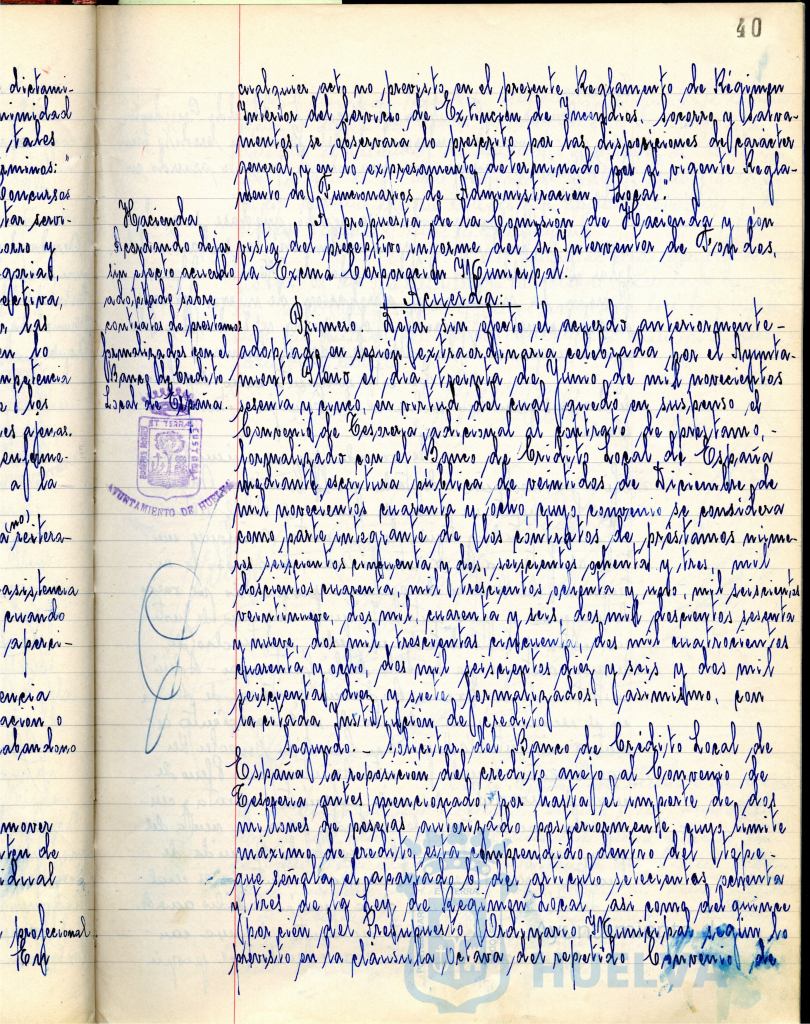 40
dictami-
nimidad
tales
rminos:"
Concursos
tar servi-
orro y
goria,
efectiva,
r las
en lo
mpetencia
e los
es ajenas.
enferme-
a la
(no)
a reitera-
asistencia
cuando
aperci-
encia
ación o
abandono
mover
iten de
idual
profesional
En
cualquier acto no previsto en el presente Reglamento de Régimen
Interior del Servicio de Extinción de Incendios. Socorro y Salva-
mentos, se observará lo prescrito por las disposiciones de carácter
general y en lo expresamente determinado por el vigente Regla-
mento de Funcionarios de Administración Local."
A propuesta de la Comisión de Hacienda y con
vista del preceptivo informe del Sr. Interventor de Fondos,
la Excma Corporación Municipal.
Acuerda:
Hacienda
Acordando dejar
sin efecto acuerdo
adoptado sobre
contratos de préstamos
formalizados con el
Banco de Crédito
Local de España.
Primero. Dejar sin efecto el acuerdo anteriormente-
adoptado en sesión extraordinaria celebrada por el Ayunta-
miento Pleno el día treinta de Junio de mil novecientos
sesenta y cinco, en virtud del cual quedó en suspenso el
Convenio de Tesorería adicional al contrato de préstamo,-
formalizado con el Banco de Crédito Local de España
mediante escritura pública de veintidos de Diciembre de
mil novecientos cuarenta y ocho cuyo convenio se considera
como parte integrante de los contratos de préstamos núme-
ros seiscientos cincuenta y dos, seiscientos ochenta y tres, mil
doscientos cuarenta, mil trescientos ochenta y uno, mil seiscientos
veintinueve, dos mil cuarenta y seis, dos mil doscientos sesenta
y nueve, dos mil trescientos cincuenta, dos mil cuatrocientos
cuarenta y ocho, dos mil seiscientos diez y seis y dos mil
seiscientos diez y siete, formalizados, asimismo, con
la citada Institución de crédito
Segundo.- Solicitar del Banco de Crédito Local de
España la reposición del crédito anejo al Convenio de
Tesorería antes mencionado, por hasta el importe de dos
millones de pesetas autorizado posteriormente cuyo límite
máximo de crédito está comprendido dentro del tope-
que señala el apartado b) del artículo setecientos ochenta
y tres de la Ley de Régimen Local, así como del quince
por cien del Presupuesto Ordinario Municipal según lo
previsto en la cláusula Octava del repetido Convenio de
AYUNTAMIENTO DE HUELVA
HUELVA